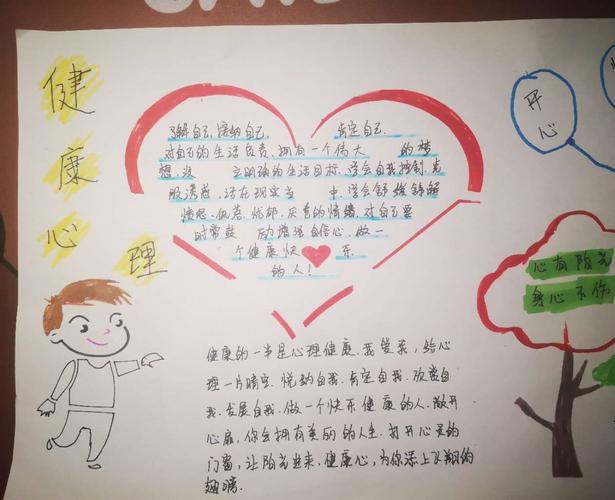 健
康
心
理
了解自己,接纳自己. 肯定自己.
对自己的生活负责.拥有一个伟大 的梦
想.设 立明确的生活目标.学会自我控制.克
服诱惑.活在现实当 中.学会舒缓舒解
愤怒、仇恨、忧郁、厌售的情绪.对自己要
时常鼓 励增强自信心.做一
个健康快 乐
的人!
开
心
心有阳光
身心不伤
健康的一半是心理健康.我爱我,给心
理一片晴空.悦纳自我.肯定自我.改善自
我.发展自我.做一个快乐健康的人.敞开
心扉,你会拥有美丽的的人生.打开心灵的
门窗,让阳光进来.健康心,为你添上飞翔的
翅膀.